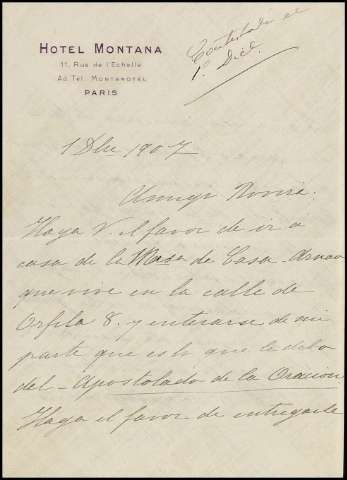 HOTEL MONTANA
11, Rue de l'Echelle
Ad. Tel. MONTANOTEL
PARIS
Contestada el
1º Dicb.
1 Dbre 1907
Amigo Rovira:
Haga V. el favor de ir a
casa de la Mqsa de Casa-Arnao
que vive en la calle de
Orfila 8. y enterarse de mi
parte que es lo que le debo
del Apostolado de la Oracion
Haga el favor de entregarle